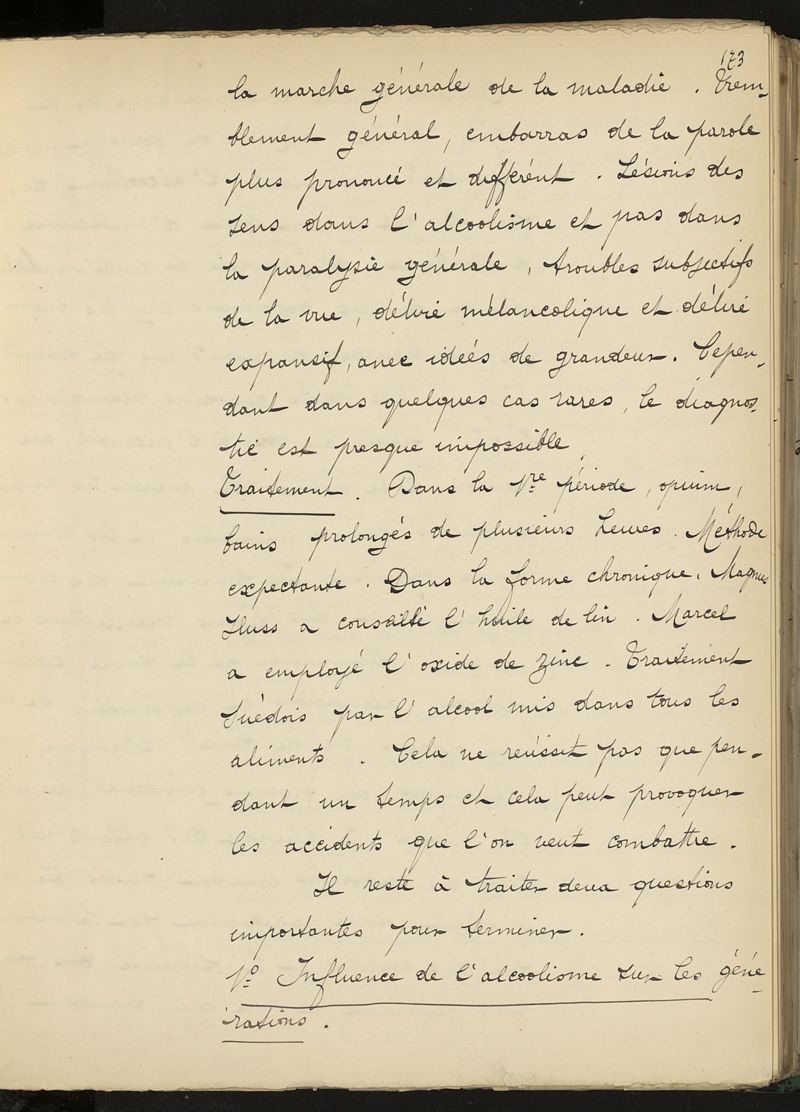 173
la marche générale de la maladie. Trem-
blement général, embarras de la parole
plus prononcé et différent. Lésions des
sens dans l'alcoolisme et pas dans
la paralysie générale, troubles subjectifs
de la vue, délire mélancolique et délire
expansif, avec idées de grandeur. Cepen-
dant dans quelques cas rares, le diagnos-
tic est presque impossible
Traitement. Dans la 1re période, opium,
bains prolongés de plusieurs heures. Méthode
expectante. Dans la forme chronique. Magnus
Huss a conseillé l'huile de lin. Marcel
a employé l'oxide de zinc. Traitement
suédois par l'alcool mis dans tous les
aliments. Cela ne réussit pas que pen-
dant un temps et cela peut provoquer
les accidents que l'on veut combattre.
Il reste à traiter deux questions
importantes pour terminer.
1º Influence de l'alcoolisme sur les géné-
rations.